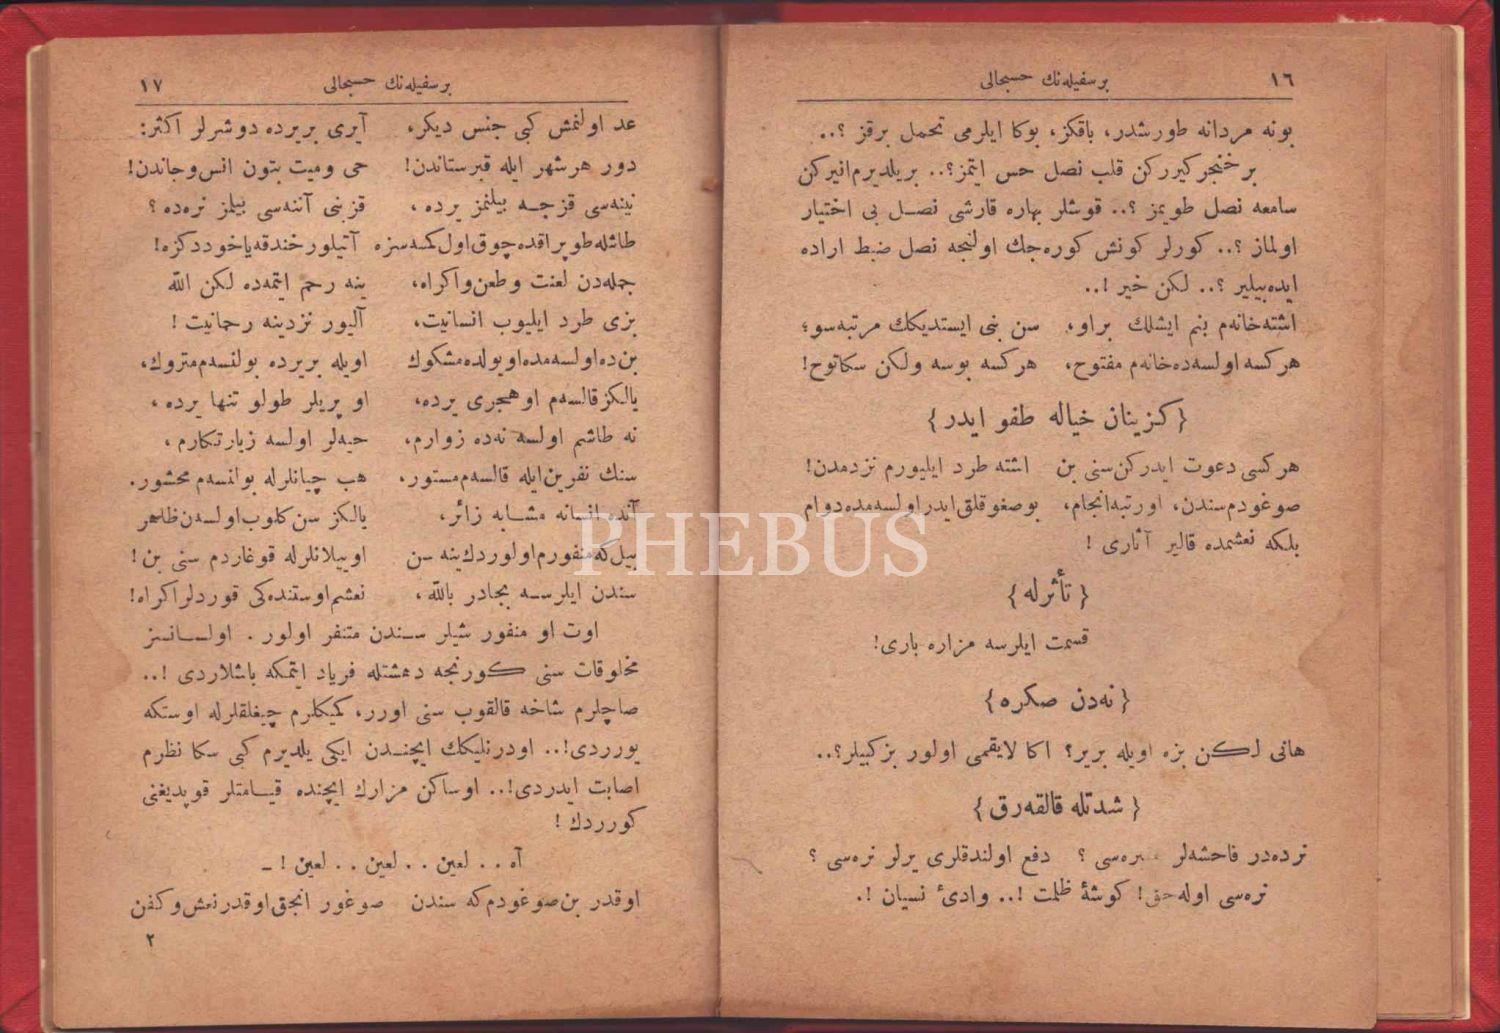 ١٦ بر سفيله نك حسبحالى
بونه مردانه طورشدر، باقكز، بوكا ايلرمى تحمل برقز ؟..
بر خنجر كيرركن قلب نصل حس ايتمز؟.. بر يلديرم انيركن
سامعه نصل طويمز ؟.. قوشلر بهاره قارشى نصل بى اختيار
اولماز ؟.. كورلر كونش كوره جك اولنجه نصل ضبط اراده
ايده بيلير ؟.. لكن خير !..
اشته خانه م بنم ايشلك براو، سن بنى ايستديكك مرتبه سو؛
هر كسه اولسه ده خانه م مفتوح، هركسه بوسه ولكن سكاتوح!
{ كزينان خياله طفو ايدر }
هركسى دعوت ايدركن سنى بن اشته طرد ايليورم نزدمدن!
صوغودم سندن، اورتبه انجام، بوصغوقلق ايدر اولسه مده دوام
بلكه نعشمده قالير آثارى !
{ تأثرله }
قسمت ايلرسه مزاره بارى!
{ نه دن صكره }
هانى لكن بزه اويله برير؟ اكا لايقمى اولور بز كبيلر؟..
{ شدتله قالقه رق }
نرده در فاحشه لر مقبره سى ؟ دفع اولندقلرى يرلر نره سى ؟
نره سى اوله حق! كوشهٔ ظلمت !.. وادئ نسيان !.
١٧ بر سفيله نك حسبحالى
عد اولنمش كبى جنس ديكر، آيرى بريرده دوشرلر اكثر:
دور هر شهر ايله قبرستاندن! حى وميت بتون انس وجاندن!
نينه سى قزجه بيلنمز يرده ، قزبنى آننه سى بيلمز نره ده ؟
طاشله طوپراقده چوق اول كمسه سزه آتيلور خندقه ياخود دكزه!
جمله دن لعنت وطعن واكراه، ينه رحم ايتمه ده لكن الله
بزى طرد ايليوب انسانيت، آليور نزدينه رحمانيت !
بن ده اولسه مده اويولده مشكوك اويله بريرده بولنسه م متروك،
يالكز قالسه م اوهمجرى يرده، او پريلر طولو تنها يرده ،
نه طاشم اولسه نه ده زوارم، حيه لر اولسه زيارتكارم ،
سنك نفرين ايله قالسه م مستور، هب چيانلرله بولنسه م محشور.
آنده انسانه مشابه زائر، يالكز سن كلوب اولسه ن ظاهر
بيل كه منفورم اولوردك ينه سن اوييلانلرله قوغاردم سنى بن !
سندن ايلرسه بجادر بالله، نعشم اوستنده كى قوردلر اكراه!
اوت او منفور شيلر سندن متنفر اولور . اولسانسز
مخلوقات سنى كورنجه دهشتله فرياد ايتمكه باشلاردى !..
صاچلرم شاخه قالقوب سنى اورر، كميكلرم چيغلقلرله اوستكه
يورردى!.. اودرنليكك ايچندن ايكى يلديرم كبى سكا نظرم
اصابت ايدردى!.. اوساكن مزارك ايچنده قيامتلر قوپديغنى
كورردك !
آه . . لعين . . لعين . . لعين ! ـ
اوقدر بن صوغودم كه سندن صوغور انجق اوقدر نعش وكفن
٢
PHEBUS